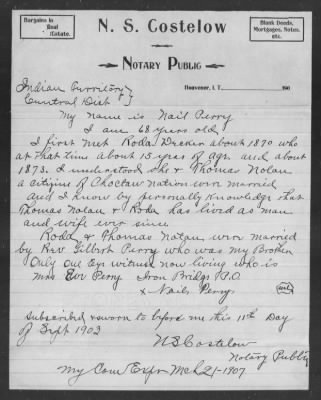 Bargains in
Real
Estate.
N. S. Costelow
Blank Deeds,
Mortgages, Notes,
etc.
NOTARY PUBLIC
Howener, I. T. 190
Indian Territory }
Central Dist }
My name is Nail Perry
I am 68 years old,
I first met Roda Decker about 1870 who
at that time about 15 years of age. and about
1873. I understood she & Thomas Nolan
a citizen of Choctaw Nation were married
and I know by personally knowledge that
Thomas Nolan & Roda has lived as man
and wife ever since
Roda & Thomas Nolan were married
by Rev. Gilbert Perry who was my Brother
Only one witness now living who is
Mrs Perry Iron Bridge P.O.
x Nail Perry
Subscribed & sworn to before me this 11th Day
of Sept 1903
N S Costelow
Notary Public
My Com Expr Mch 21-1907